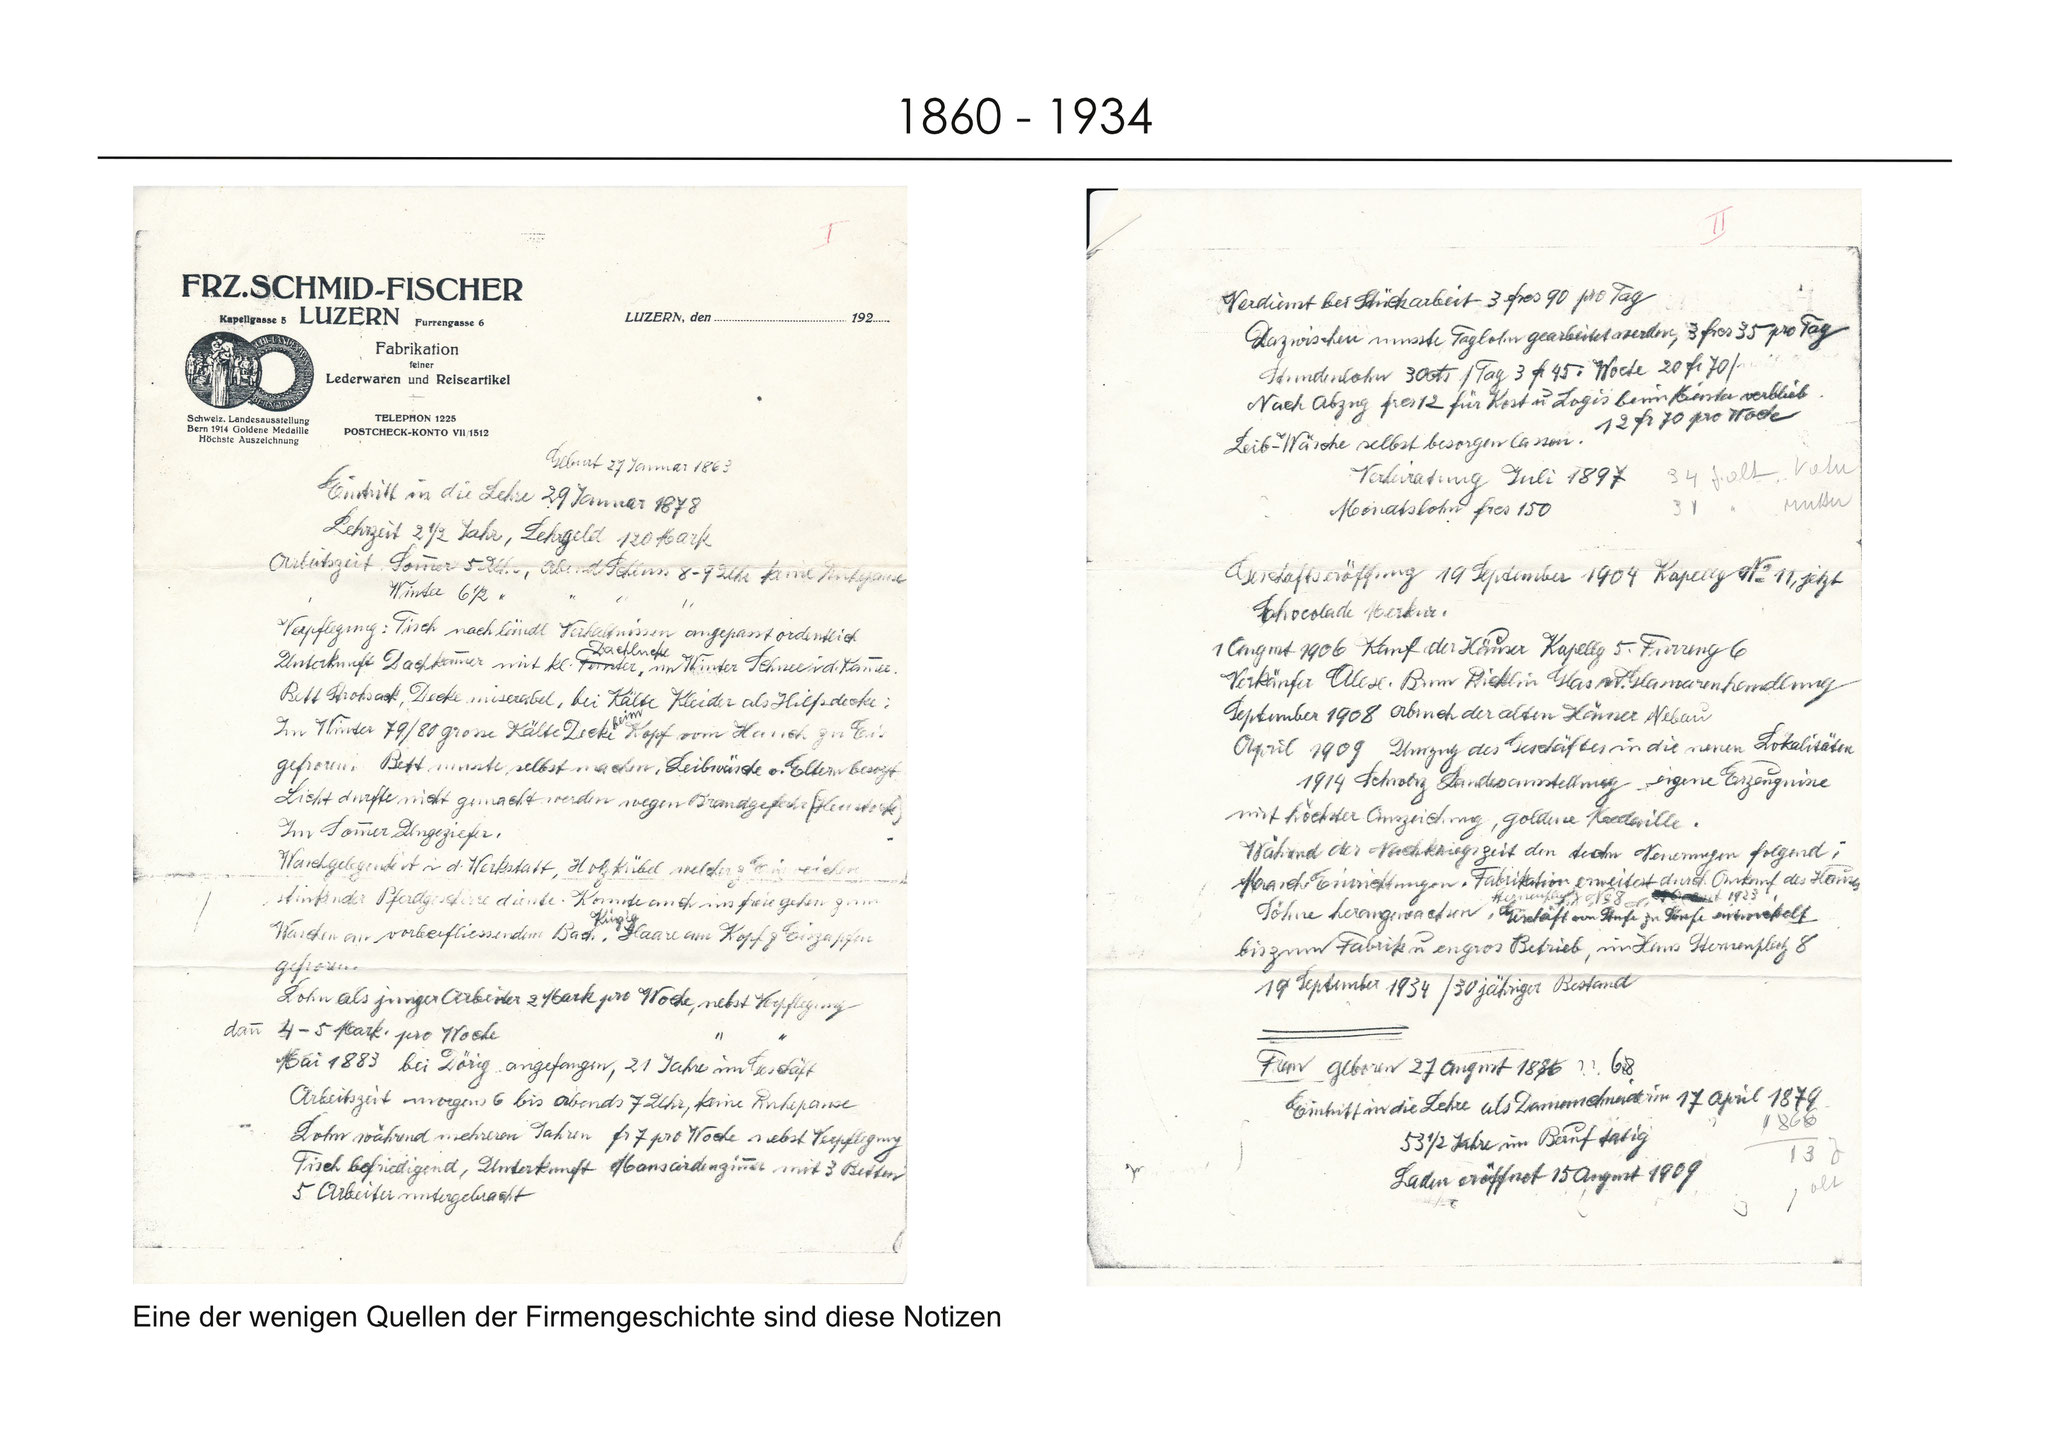 1860 - 1934
I
FRZ.SCHMID-FISCHER
Kapellgasse 5 LUZERN Furrengasse 6
LUZERN, den 192
Fabrikation
feiner
Lederwaren und Reiseartikel
Schweiz. Landesausstellung
Bern 1914 Goldene Medaille
Höchste Auszeichnung
TELEPHON 1225
POSTCHECK-KONTO VII/1512
Geburt 27 Januar 1863
Eintritt in die Lehre 29 Januar 1878
Lehrzeit 2 1/2 Jahr, Lehrgeld 120 Mark
Arbeitszeit Som̅er 5 Uhr, abend Schluss 8-9 Uhr keine Ruhepause
Winter 6 1/2 " " " "
Verpflegung: Tisch nach ländl Verhältnissen angepasst ordentlich
Dachlucke
Unterkunft Dachkam̅er mit kl. Fenster, im Winter Schnee i d. Kam̅er.
Bett Strohsack, Decke miserabel, bei Kälte Kleider als Hilfsdecke;
Im Winter 79/80 grosse Kälte Decke beim Kopf vom Hauch zu Eis
gefroren. Bett musste selbst machen, Leibwäsche v. Eltern besorgt
Licht durfte nicht gemacht werden wegen Brandgefahr (Heustock)
Im Som̅er Ungeziefer.
Waschgelegenheit i d. Werkstatt, Holzkübel welcher z Einweichen
stinkender Pferdgeschirre diente. Konnte auch ins freie gehen zum
Waschen am vorbeifliessendem Bach. Haare am Kopf z Eiszapfen
gefroren.
Lohn als junger Arbeiter 2 Mark pro Woche, nebst Verpflegung
dan̅ 4-5 Mark. pro Woche " "
Mai 1883 bei Dörig angefangen, 21 Jahre im Geschäft
Arbeitszeit morgens 6 bis abends 7 Uhr, keine Ruhepause
Lohn während mehreren Jahren fr 7 pro Woche nebst Verpflegung
Tisch befriedigend, Unterkunft Mansardenzim̅er mit 3 Betten
5 Arbeiter untergebracht
II
Verdienst bei Stückarbeit 3 frcs 90 pro Tag
Dazwischen musste Taglohn gearbeitet werden, 3 frcs 35 pro Tag
Stundenlohn 30 cts / Tag 3 fr 45. Woche 20 fr 70/
Nach Abzug frcs 12 für Kost u Logis beim Meister verblieb
12 fr 70 pro Woche
Leib-Wäsche selbst besorgen lassen.
Verheiratung Juli 1897 34 j. alt. Vater
Monatslohn frcs 150 31 " Mutter
Geschäftseröffnung 19 September 1904 Kapellg No 11, jetzt
Schocolade Merkur.
1 August 1906 Kauf der Häuser Kapellg 5. Furreng 6
Verkäufer Alex. Glas Glaswarenhandlung
September 1908 Abbruch der alten Häuser Nebau
April 1909 Umzug des Geschäftes in die neuen Lokalitäten
1914 Schweiz Landesausstellung eigene Erzeugnisse
mit höchster Auszeichung, goldene Medaille.
Während der Nachkriegszeit den techn Neuerungen folgend;
Masch. Einrichtungen. Fabrikation erweitert durch Ankauf des Hauses
Sternenplatz No 8 1923
Söhne herangewachsen, Geschäft von Stufe zu Stufe entwickelt
bis zum Fabrik u engros Betrieb, im Haus Sternenplatz 8
19 September 1934 / 30 jähriger Bestand
Frau geboren 27 August ?? 68
Eintritt in die Lehre als Damenschneiderin 17 April 1879
1866
53 1/2 Jahre im Beruf tätig
13 J
Laden eröffnet 15 August 1909
alt
Eine der wenigen Quellen der Firmengeschichte sind diese Notizen